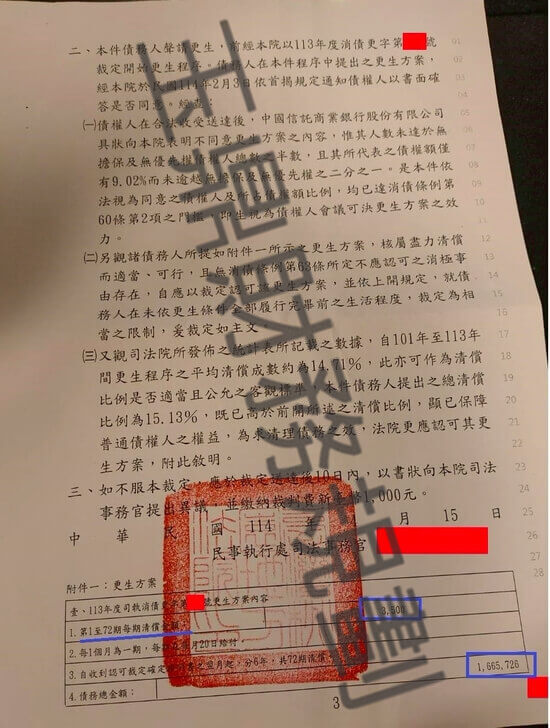 二、本件債務人聲請更生，前經本院以113年度消債更字第 號
裁定開始更生程序。債務人在本件程序中提出之更生方案，
經本院於民國114年2月3日依首揭規定通知債權人以書面確
答是否同意。經查：
㈠債權人在合法收受送達後，中國信託商業銀行股份有限公司
具狀向本院表明不同意更生方案之內容，惟其人數未達於無
擔保及無優先權債權人總數之半數，且其所代表之債權額僅
有9.02%而未逾越無擔保及無優先權之二分之一。是本件依
法視為同意之債權人及所占債權額比例，均已達消債條例第
60條第2項之門檻，即生視為債權人會議可決更生方案之效
力。
㈡另觀諸債務人所提如附件一所示之更生方案，核屬盡力清償
而適當、可行，且無消債條例第63條所定不應認可之消極事
由存在，自應以裁定認可該更生方案，並依上開規定，就債
務人在未依更生條件全部履行完畢前之生活程度，裁定為相
當之限制，爰裁定如主文。
㈢又觀司法院所發佈之統計表所記載之數據，自101年至113年
間更生程序之平均清償成數約為14.71%，此亦可作為清償
比例是否適當且公允之客觀標準，本件債務人提出之總清償
比例為15.13%，既已高於前開所述之清償比例，顯已保障
普通債權人之權益，為求清理債務之效，法院更應認可其更
生方案，附此敘明。
三、如不服本裁定，應於裁定送達後10日內，以書狀向本院司法
事務官提出異議，並繳納裁判費新臺幣1,000元。
中 華 民 國 114 年 月 15 日
民事執行處司法事務官
附件一：更生方案
壹、113年度司執消債 號更生方案內容
1.第1至72期每期清償金額： 3,500
2.每1個月為一期，每 月20日給付。
3.自收到認可裁定確定 之翌月起，分6年，共72期清償。
4.債務總金額： 1,665,726
3